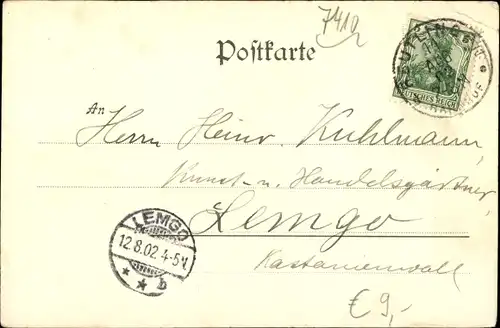 7410
Postkarte
DEUTSCHES REICH
An
Herrn Heinr. Kuhlmann,
Kunst- u. Handelsgärtner,
Lemgo
Kastanienwall
LEMGO
12.8.02 4-5 V.
* * b
€ 9,-